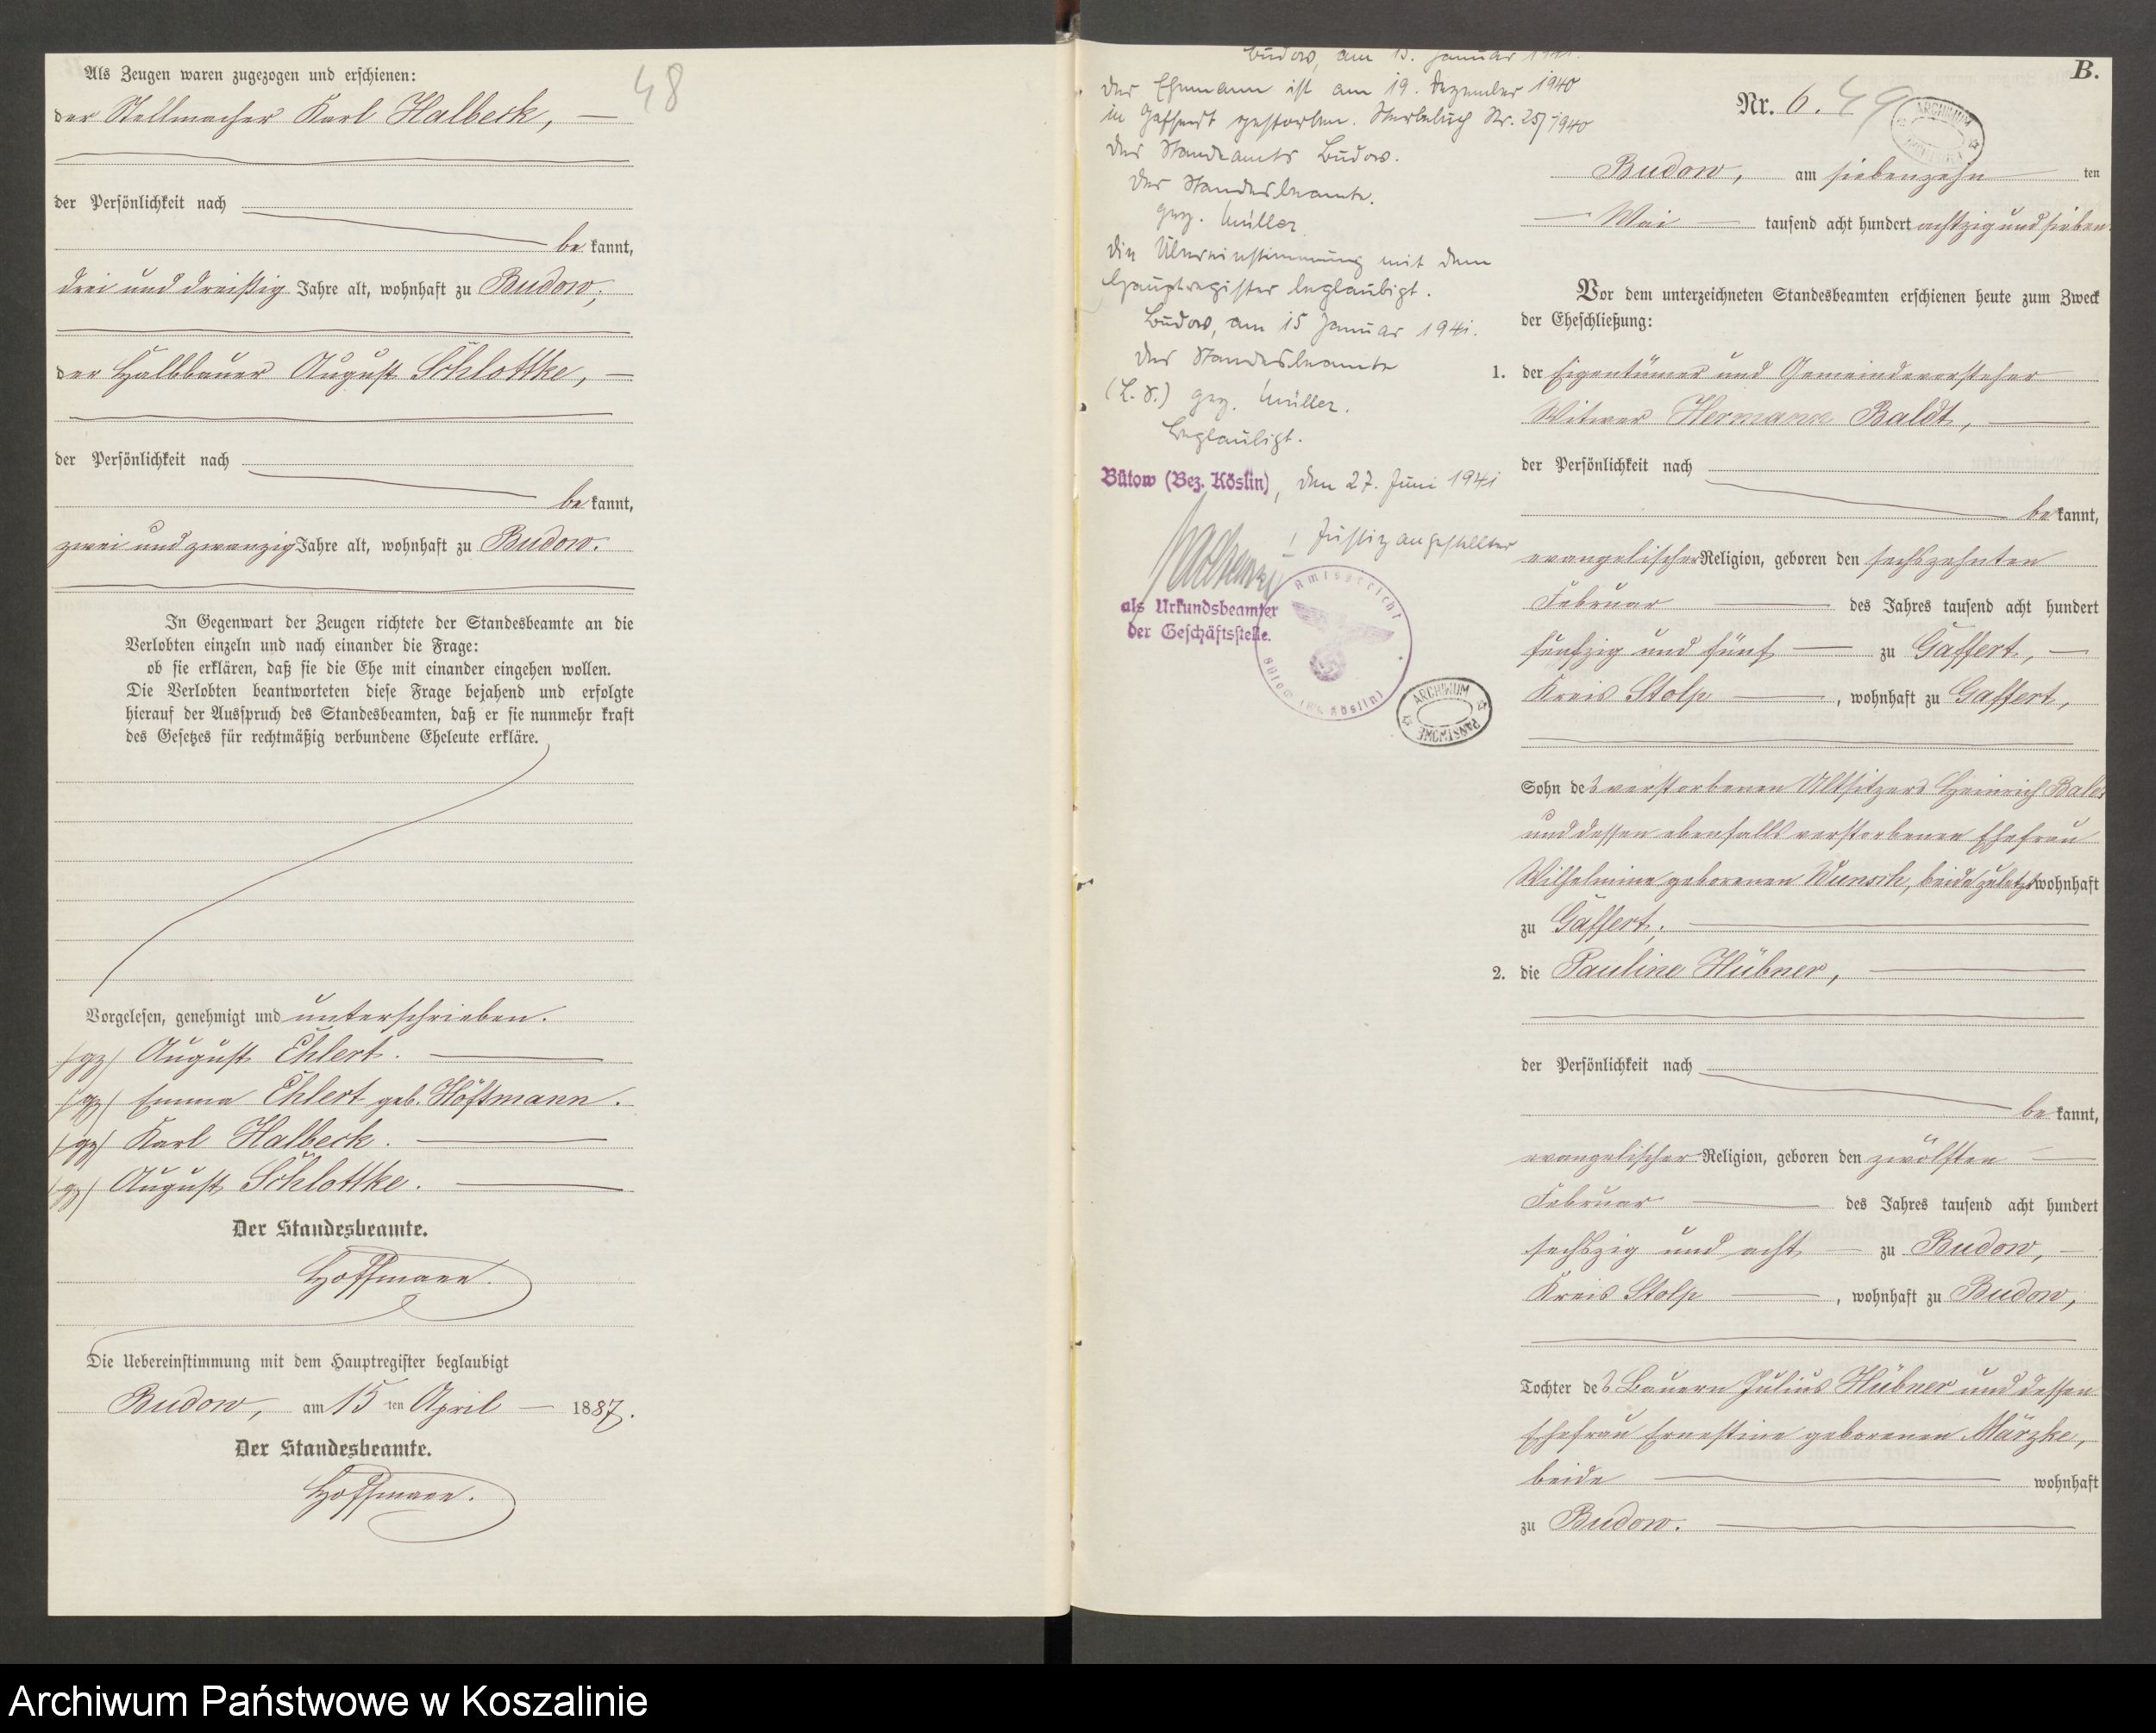 Als Zeugen waren zugezogen und erschienen:
48
der Stellmacher Karl Halbeck,
der Persönlichkeit nach
be kannt,
drei und dreißig Jahre alt, wohnhaft zu Budow;
der Halbbauer August Schlottke,
der Persönlichkeit nach
be kannt,
zwei und zwanzig Jahre alt, wohnhaft zu Budow.
In Gegenwart der Zeugen richtete der Standesbeamte an die
Verlobten einzeln und nach einander die Frage:
ob sie erklären, daß sie die Ehe mit einander eingehen wollen.
Die Verlobten beantworteten diese Frage bejahend und erfolgte
hierauf der Ausspruch des Standesbeamten, daß er sie nunmehr kraft
des Gesetzes für rechtmäßig verbundene Eheleute erkläre.
Vorgelesen, genehmigt und unterschrieben.
(gz) August Ehlert.
(gz) Emma Ehlert geb. Höftmann.
(gz) Karl Halbeck.
(gz) August Schlottke.
Der Standesbeamte.
Hoffmann.
Die Uebereinstimmung mit dem Hauptregister beglaubigt
Budow, am 15 ten April 1887.
Der Standesbeamte.
Hoffmann.
Budow, am 15. Januar 1941.
Der Ehemann ist am 19. Dezember 1940
in Gaffert gestorben. Sterbebuch Nr. 25/1940
des Standeamts Budow.
Der Standesbeamte.
gez. Müller.
Die Übereinstimmung mit dem
Hauptregister beglaubigt.
Budow, am 15 Januar 1941.
Der Standesbeamte
(L. S.) gez. Müller.
Beglaubigt.
Bütow (Bez. Köslin), den 27. Juni 1941
Justizangestellter
als Urkundsbeamter
der Geschäftsstelle.
Amtsgericht
Bütow (Bz. Köslin)
ARCHIWUM
PAŃSTWOWE
B.
Nr. 6. 49
ARCHIWUM
Budow, am siebenzehn ten
Mai tausend acht hundert achtzig und sieben.
Vor dem unterzeichneten Standesbeamten erschienen heute zum Zweck
der Eheschließung:
1. der Eigentümer und Gemeindevorsteher
Witwer Hermann Baldt,
der Persönlichkeit nach
be kannt,
evangelischer Religion, geboren den sechszehnten
Februar des Jahres tausend acht hundert
fünfzig und fünf zu Gaffert,
Kreis Stolp, wohnhaft zu Gaffert,
Sohn des verstorbenen Altsitzers Heinrich Baldt
und dessen ebenfalls verstorbenen Ehefrau
Wilhelmine geborenen Wunsch, beide zuletzt wohnhaft
zu Gaffert;
2. die Pauline Hübner,
der Persönlichkeit nach
be kannt,
evangelischer Religion, geboren den zwölften
Februar des Jahres tausend acht hundert
sechszig und acht zu Budow,
Kreis Stolp, wohnhaft zu Budow,
Tochter des Bauern Julius Hübner und dessen
Ehefrau Ernestine geborenen Märzke,
beide wohnhaft
zu Budow.
Archiwum Państwowe w Koszalinie